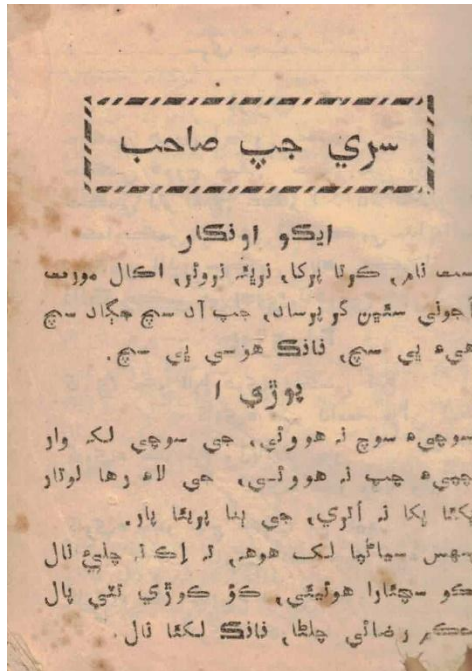 سري جپ صاحب
ايڪو اونڪار
ست نام، ڪرتا پرکا، نرڀئہ نروئر، اڪال مورت
اجوني سڀن گر پرساد، جپ آد سچ جڳاد سچ
هيء ڀي سچ، نانڪ هوسي ڀي سچ.
پوڙي ۱
سوچيء سوچ نہ هووئي، جي سوچي لک وار
چپيء چپ نہ هووئي، جي لاء رها لوتار
ڀکئا ڀکا نہ اُتري، جي بنا پريئا ڀار.
سهس سياڻپا لک هوهہ، تہ اِڪ نہ چليء نال
ڪو سچئارا هوئيئي، ڪؤ ڪوڙي تٽي پال
حڪم رضائي چلڻا، نانڪ لکئا نال.